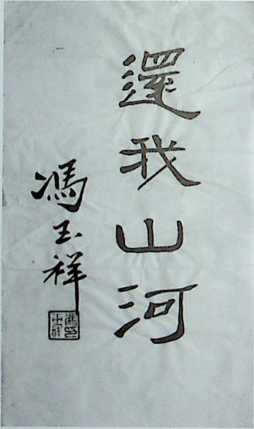 還我山河
馮玉祥